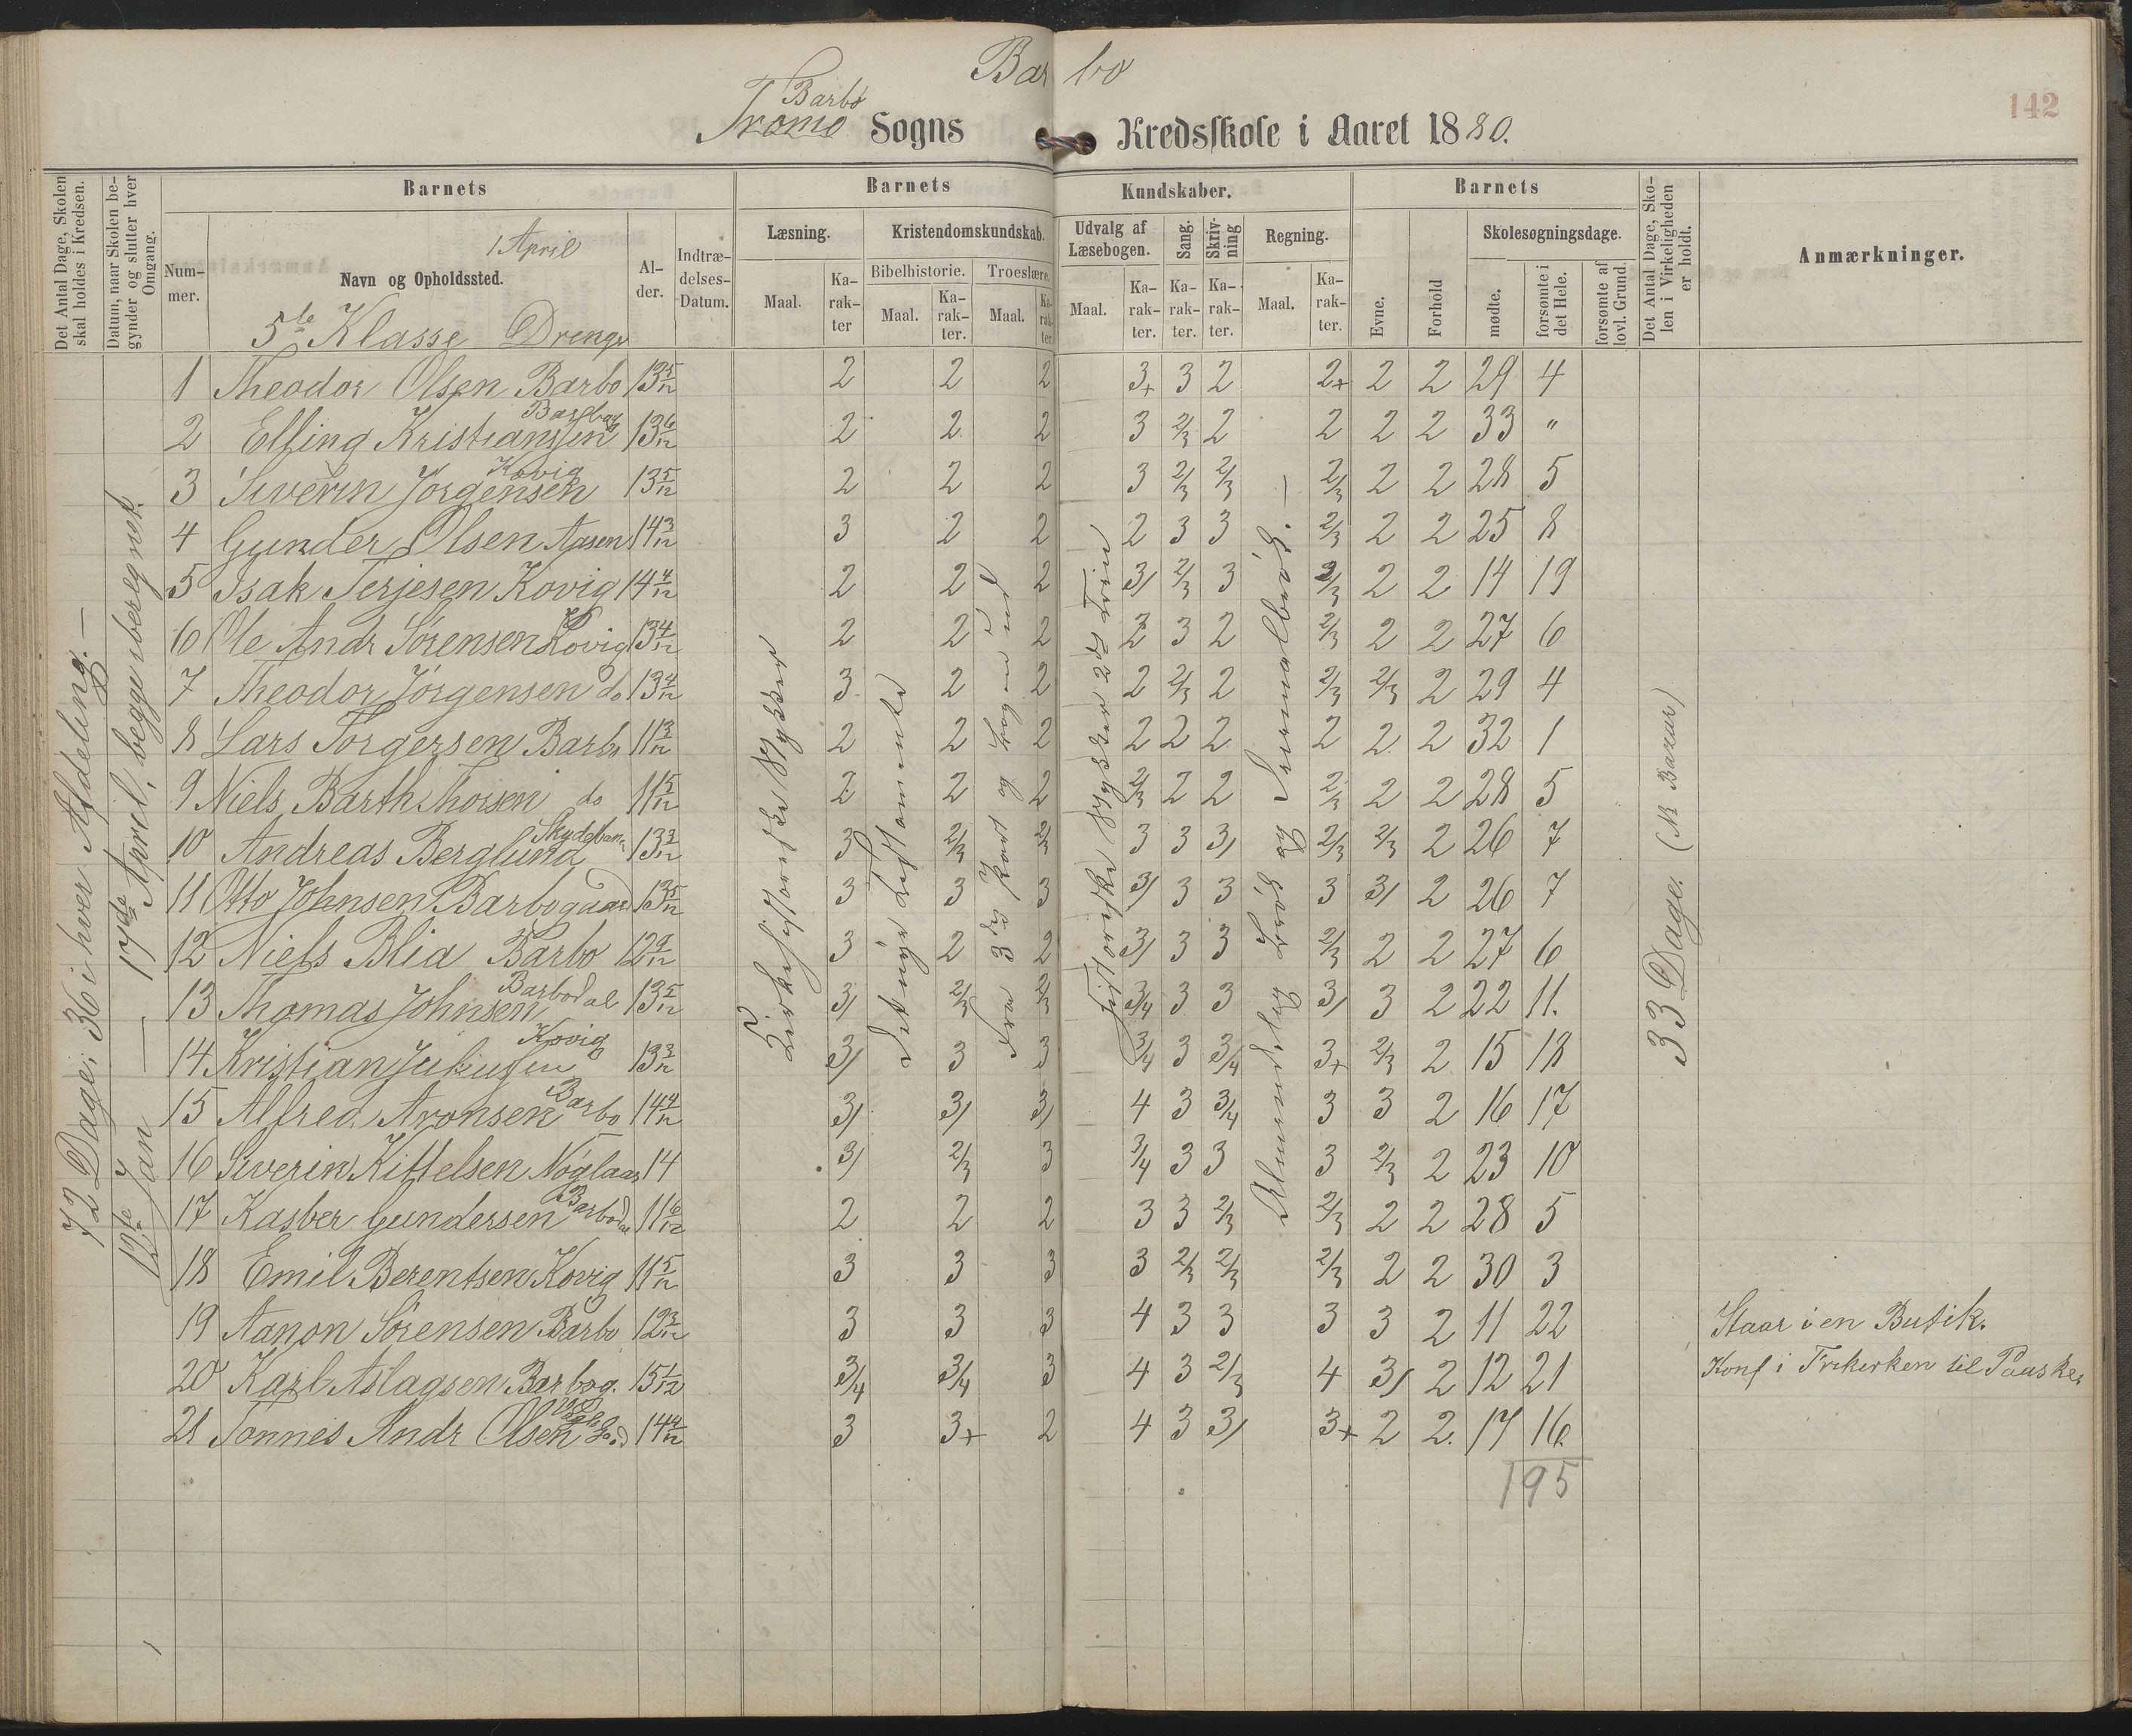 Barbo
142
Barbo
Tromø Sogns Kredsskole i Aaret 1880.
Det Antal Dage, Skolen skal holdes i Kredsen.
Datum, naar Skolen begynder og slutter hver Omgang.
Barnets
Barnets
Kundskaber.
Barnets
Det Antal Dage, Skolen i Virkeligheden er holdt.
Anmærkninger.
Nummer.
Navn og Opholdssted.
1 April
Alder.
Indtrædelses-Datum.
Læsning.
Kristendomskundskab.
Udvalg af Læsebogen.
Sang.
Skrivning
Regning.
Evne.
Forhold
Skolesøgningsdage.
Bibelhistorie.
Troeslære.
Maal. Karakter
Maal. Karakter.
Maal. Karakter
Maal. Karakter.
Karakter.
Karakter.
Maal. Karakter.
mødte.
forsømte i det Hele.
forsømte af lovl. Grund.
5te Klasse Drenge
72 Dage; 36 i hver Afdeling. —
12te Jan — 17de April, begge iberegnet.
Kirkehistoriske Stykker
Det nye Testamente
Fra 3die Part og Bogen ud
Historiske Stykker 2det Trin
Almindelig Brøk og Decimalbrøk. —
33 Dage. (Nk Bazar)
1 Theodor Olsen Barbo 13 5/12 2 2 2 3+ 3 2 2+ 2 2 29 4
2 Elling Kristiansen Barbog 13 6/12 2 2 2 3 2/3 2 2 2 2 33 "
3 Siverin Jørgensen Kovig 13 5/12 2 2 2 3 2/3 2/3 2/3 2 2 28 5
4 Gunder Olsen Aasen 14 3/12 3 2 2 2 3 3 2/3 2 2 25 8
5 Isak Terjesen Kovig 14 4/12 2 2 2 3/ 2/3 3 2/3 2 2 14 19
6 Ole Andr Sørensen Kovig 13 4/12 2 2 2 2 3 2 2/3 2 2 27 6
7 Theodor Jörgensen do 13 4/12 3 2 2 2 2/3 2 2/3 2/3 2 29 4
8 Lars Torgersen Barbo 11 3/12 2 2 2 2 2 2 2 2 2 32 1
9 Niels Barth Thorsen do 11 5/12 2 2 2 2/3 2 2 2/3 2 2 28 5
10 Andreas Berglund Skydeban. 13 3/12 3 2/3 2/3 3 3 3/ 2/3 2/3 2 26 7
11 Otto Johnsen Barbogaard 13 5/12 3 3 3 3/ 3 3 3 3/ 2 26 7
12 Niels Blia Barbo 12 9/12 3 2 2 3/ 3 3 2/3 2 2 27 6
13 Thomas Johnsen Barbodal 13 5/12 3/ 2/3 2/3 3/4 3 3 3/ 3 2 22 11.
14 Kristian Juliussen Kovig 13 3/12 3/ 3 3 3/4 3 3/4 3+ 2/3 2 15 18
15 Alfred Aronsen Barbo 14 4/12 3/ 3/ 3/ 4 3 3/4 3 3 2 16 17
16 Siverin Kittelsen 14 3/ 2/3 3 3/4 3 3 3 2/3 2 23 10
17 Kasber Gundersen Barbodal 11 6/12 2 2 2 3 3 2/3 2/3 2 2 28 5
18 Emil Berentsen Kovig 11 5/12 3 3 3 3 2/3 2/3 2/3 2 2 30 3
19 Aanon Sörensen Barbo 12 3/12 3 3 3 4 3 3 3 3 2 11 22 Staar i en Butik.
20 Karl Aslagsen Barbog. 15 1/12 3/4 3/4 3 4 3 2/3 4 3/ 2 12 21 Konf i Frikirken til Paaske.
21 Tønnes Andr Olsen 14 4/12 3 3+ 2 4 3 3/ 3+ 2 2. 17 16
195